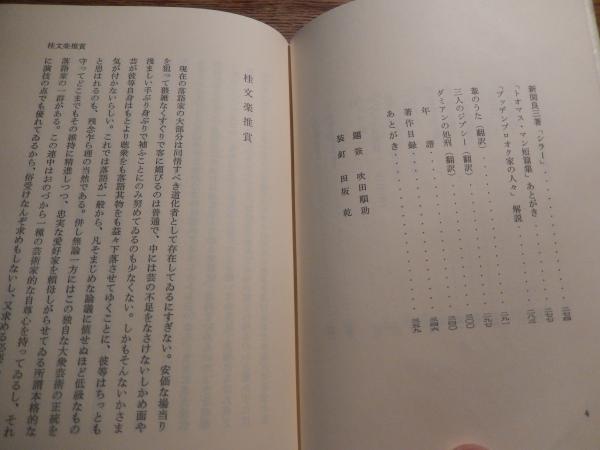 新関良三著「シラー」・・・・・・・・・・二七四
「トオマス・マン短篇集」あとがき・・・・・・・・・・二七七
「ブッデンブロオク家の人々」解説・・・・・・・・・・二八三
葦のうた（翻訳）・・・・・・・・・・二九一
三人のジプシー（翻訳）・・・・・・・・・・二九七
ダミアンの処刑（翻訳）・・・・・・・・・・三〇〇
年譜・・・・・・・・・・
著作目録・・・・・・・・・・
あとがき・・・・・・・・・・
題簽 吹田順助
装釘 田坂乾
4
桂文楽推賞
桂文楽推賞
現在の落語家の大部分は同情すべき道化者として存在してゐるにすぎない。安価な場当り
を狙って猥雑なくすぐりで客に媚びるのは普通で、中には芸の不足をなさけないしかめ面や
浅ましい手ぶり身ぶりで補ふことにのみ努めてゐるのも少なくない。しかもそんないかさま
芸が彼等自身はもとより聴衆をも落語其物をも益々下落させてゆくことに、彼等はちっとも
気が付かないらしい。これでは落語が一般から、凡そまじめな論議に値せぬほど低級なもの
と思はれるのも、残念乍ら理の当然である。併し無論一方にはこの独自な大衆芸術の正統を
守ってどこまでもその維持に精進しつつ、忠実な愛好家を頼母しがらせてゐる所謂本格的な
落語家の一群がある。この連中はおのづから一種の芸術家的な自尊心を持ってゐるし、それ
に演技の点でも優れてゐるから、俗受けなんぞ求めもしないし、又求める